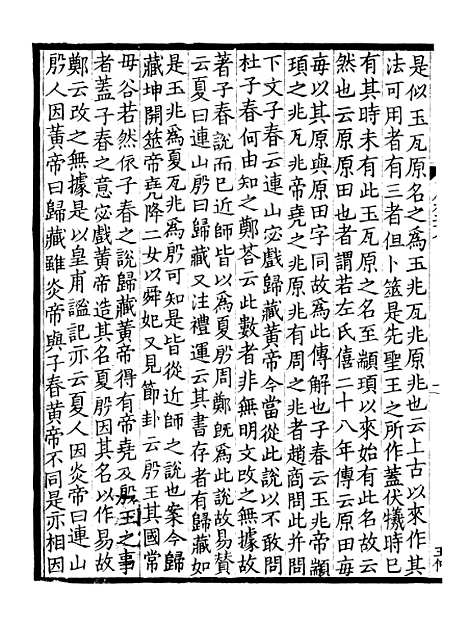 是似玉瓦原名之為玉兆瓦兆原兆也云上古以來作其
法可用者有三者但卜筮是先聖王之所作蓋伏犧時已
有其時未有此玉瓦原之名至顓頊以來始有此名故云
然也云原原田也者謂若左氏僖二十八年傳云原田每
每以其原與原田字同故為此傳解也子春云玉兆帝顓
頊之兆瓦兆帝堯之兆原兆有周之兆者趙商問此并問
下文子春云連山宓戲歸藏黃帝今當從此說以不敢問
杜子春何由知之鄭荅云此數者非無明文改之無據故
著子春說而已近師皆以為夏殷周鄭旣為此說故易賛
云夏曰連山殷曰歸藏又注禮運云其書存者有歸藏如
是玉兆為夏瓦兆為殷可知是皆從近師之說也案今歸
藏坤開筮帝堯降二女以舜妃又見節卦云殷王其國常
毋谷若然依子春之說歸藏黃帝得有帝堯及殷王之事
者蓋子春之意宓戲黃帝造其名夏殷因其名以作易故
鄭云改之無據是以皇甫謐記亦云夏人因炎帝曰連山
殷人因黃帝曰歸藏雖炎帝與子春黃帝不同是亦相因